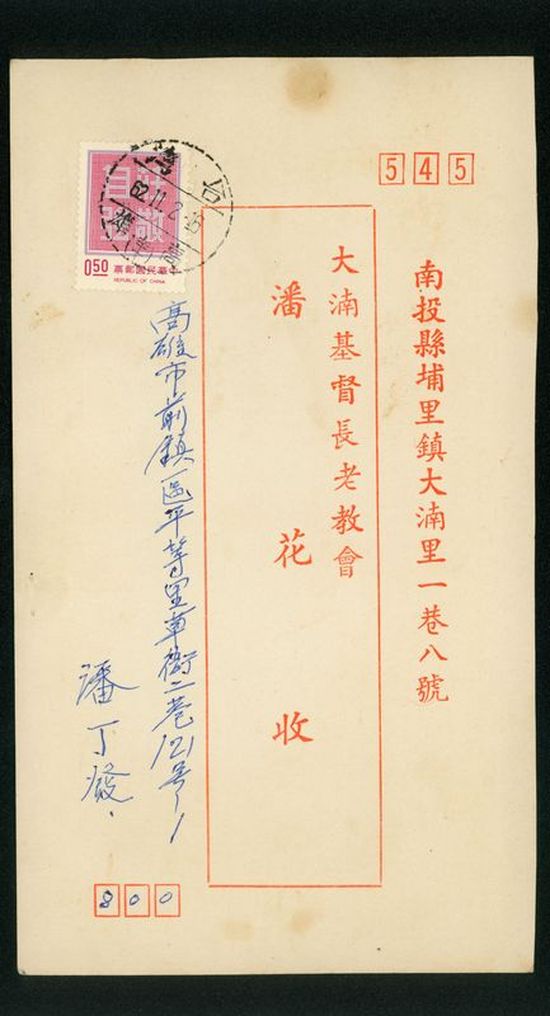 545
南投縣埔里鎮大湳里一巷八號
大湳基督長老教會
潘花收
莊敬自強
0.50
中華民國郵票
REPUBLIC OF CHINA
62.11.2.15
高雄市前鎮區平等里車衝二巷121号
潘丁發
800